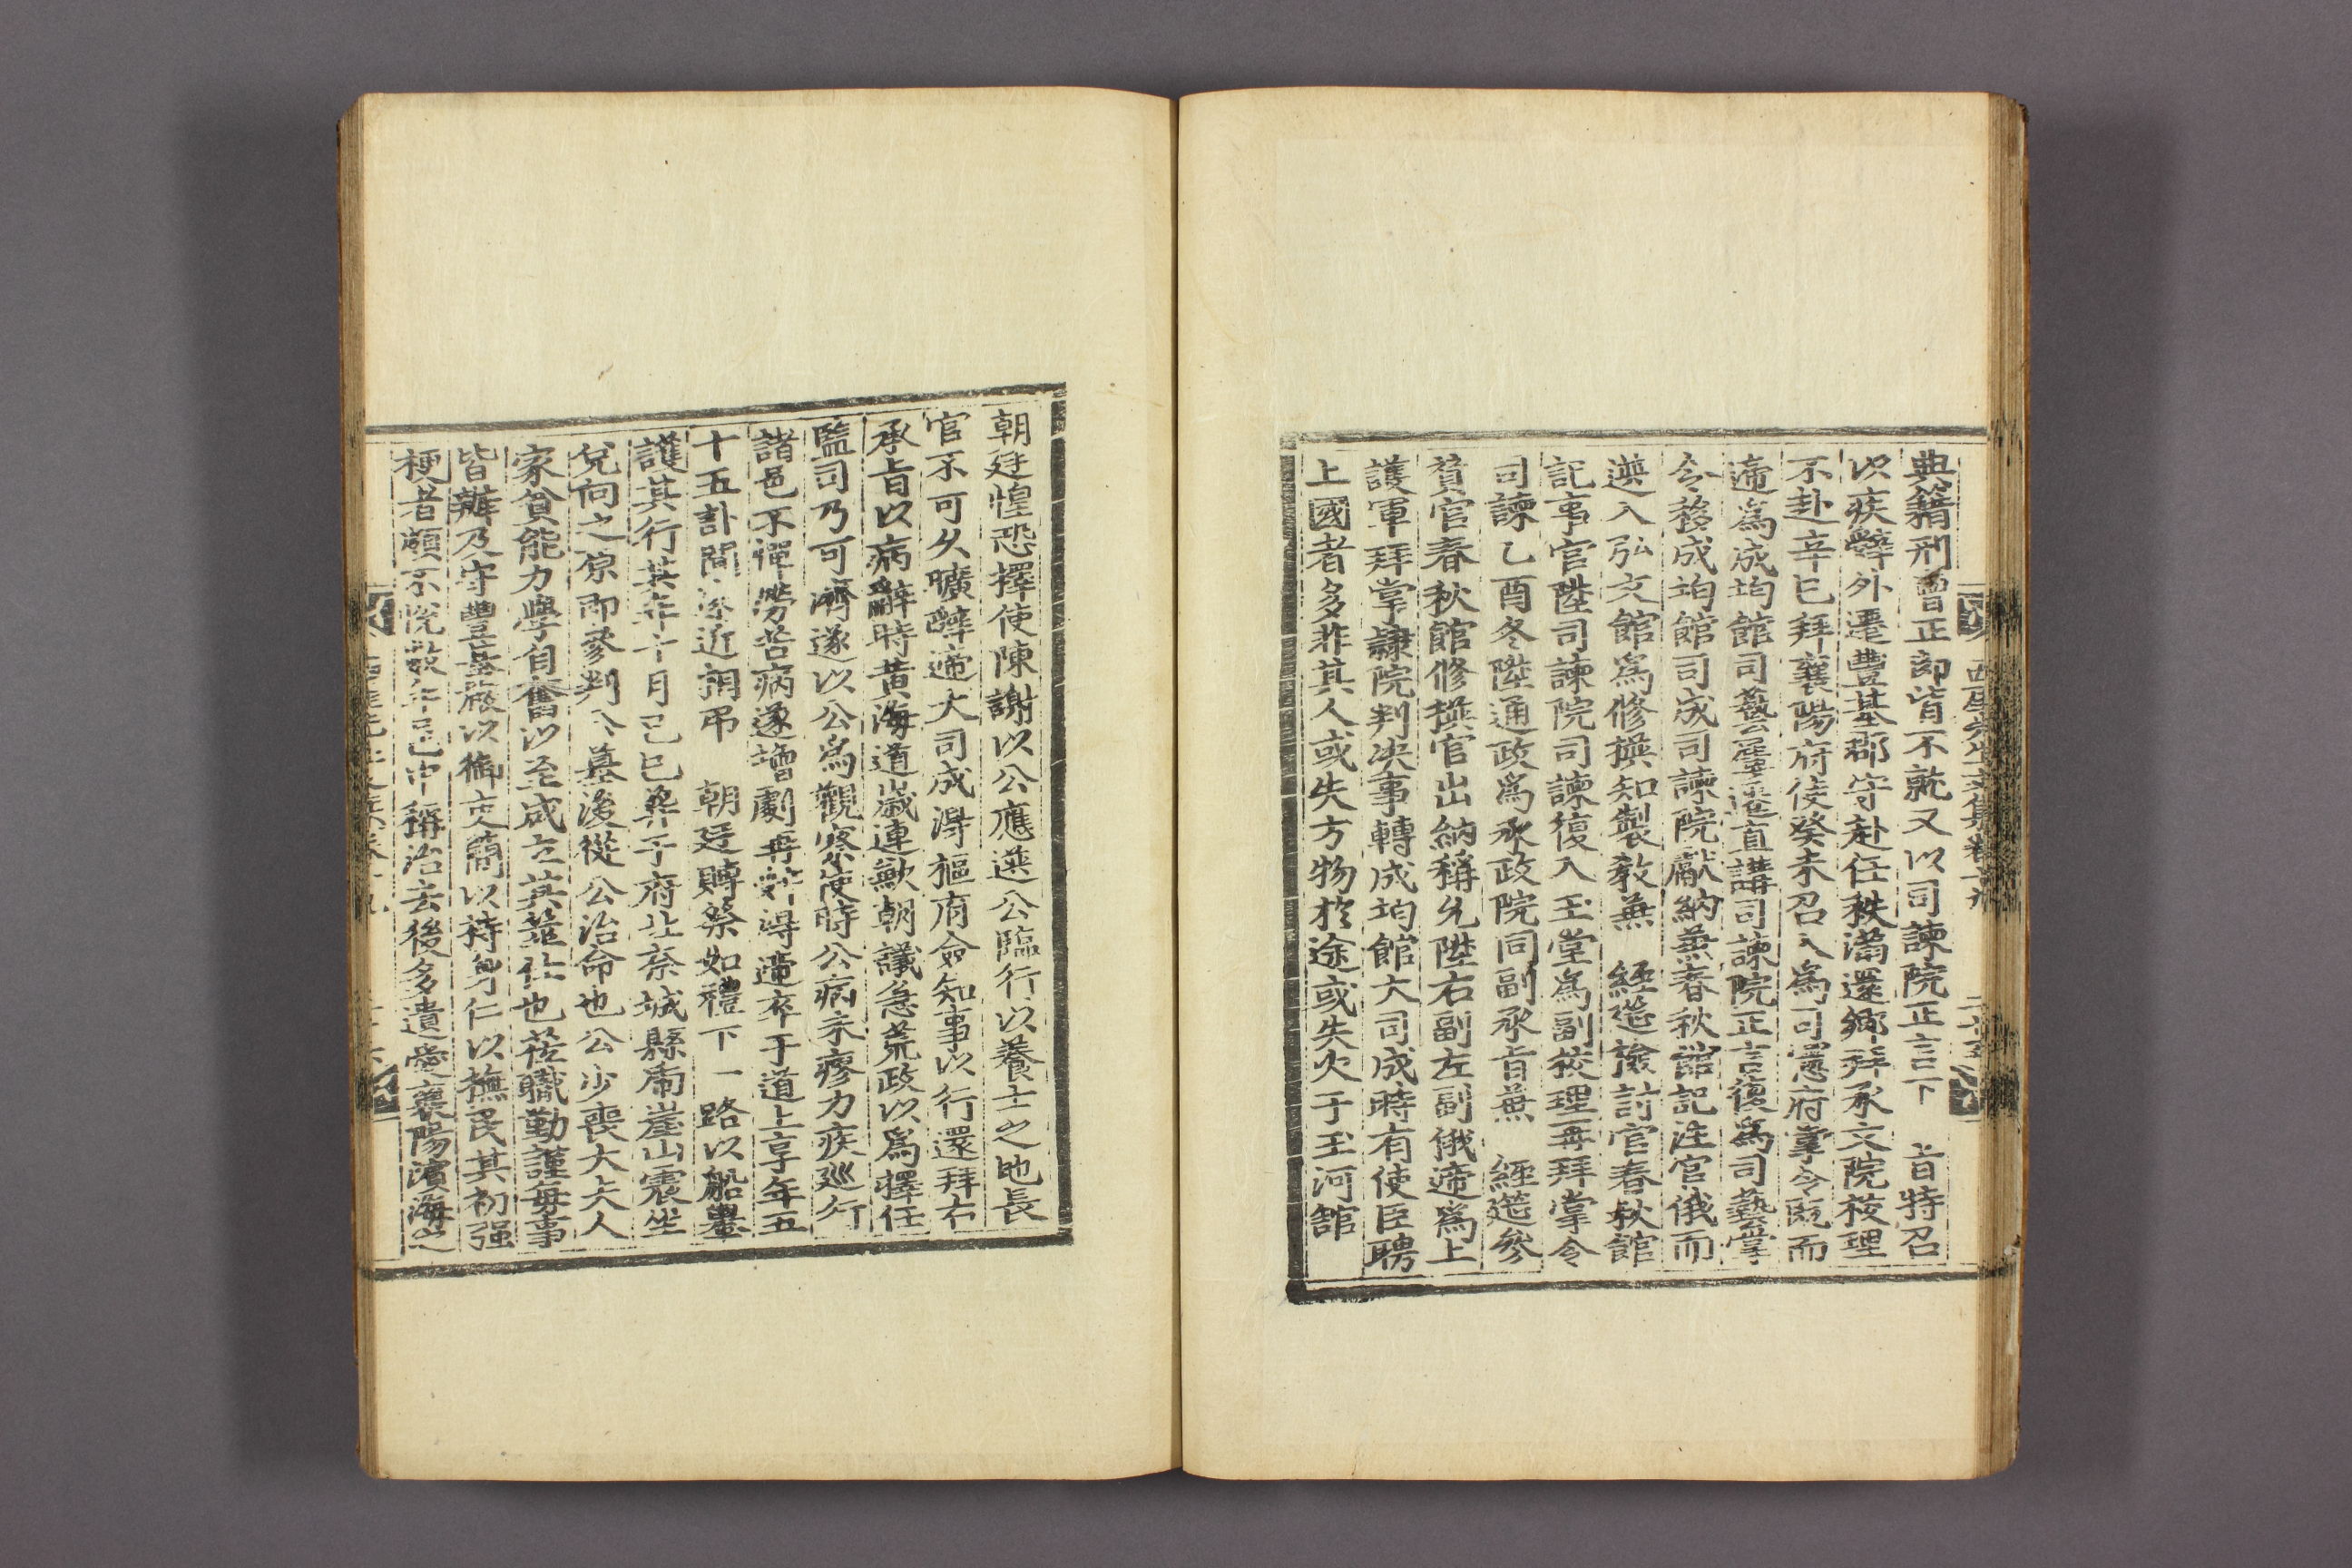 典籍刑曹正郎皆不就又以司諫院正言下 旨特召
以疾辭外遷豊基郡守赴任秩滿還鄕拜承文院校理
不赴辛巳拜襄陽府使癸未召入爲司憲府掌令旣而
遞爲成均館司藝屢遷直講司諫院正言復爲司藝掌
令移成均館司成司諫院獻納兼春秋館記注官俄而
選入弘文館爲修撰知製敎兼 經筵檢討官春秋館
記事官陞司諫院司諫復入玉堂爲副校理再拜掌令
司諫乙酉冬陞通政爲承政院同副承旨兼 經筵參
賛官春秋館修撰官出納稱允陞右副左副俄遞爲上
護軍拜掌隷院判决事轉成均館大司成時有使臣聘
上國者多非其人或失方物於途或失火于玉河館
朝廷惶恐擇使陳謝以公應選公臨行以養士之地長
官不可久曠辭遞大司成淂樞府僉知事以行還拜右
承旨以病辭時黄海道歲連歉朝議急荒政以爲擇任
監司乃可濟遂以公爲觀察使時公病未瘳力疾巡行
諸邑不憚勞苦病遂增劇再辭淂遞卒于道上享年五
十五訃聞 遣近朝吊 朝廷賻祭如禮下一路以船轝
護其行其年十月己巳葬于府北奈城縣南崖山震坐
兊向之原即參判公墓後從公治命也公少喪大夫人
家貧能力學自奮以至成立其莅也莅職勤謹每事
皆辦及守豊基嚴以御吏簡以持身仁以撫民其初强
梗者頗不悅數年已中稱治去後多遺愛襄陽濱海之